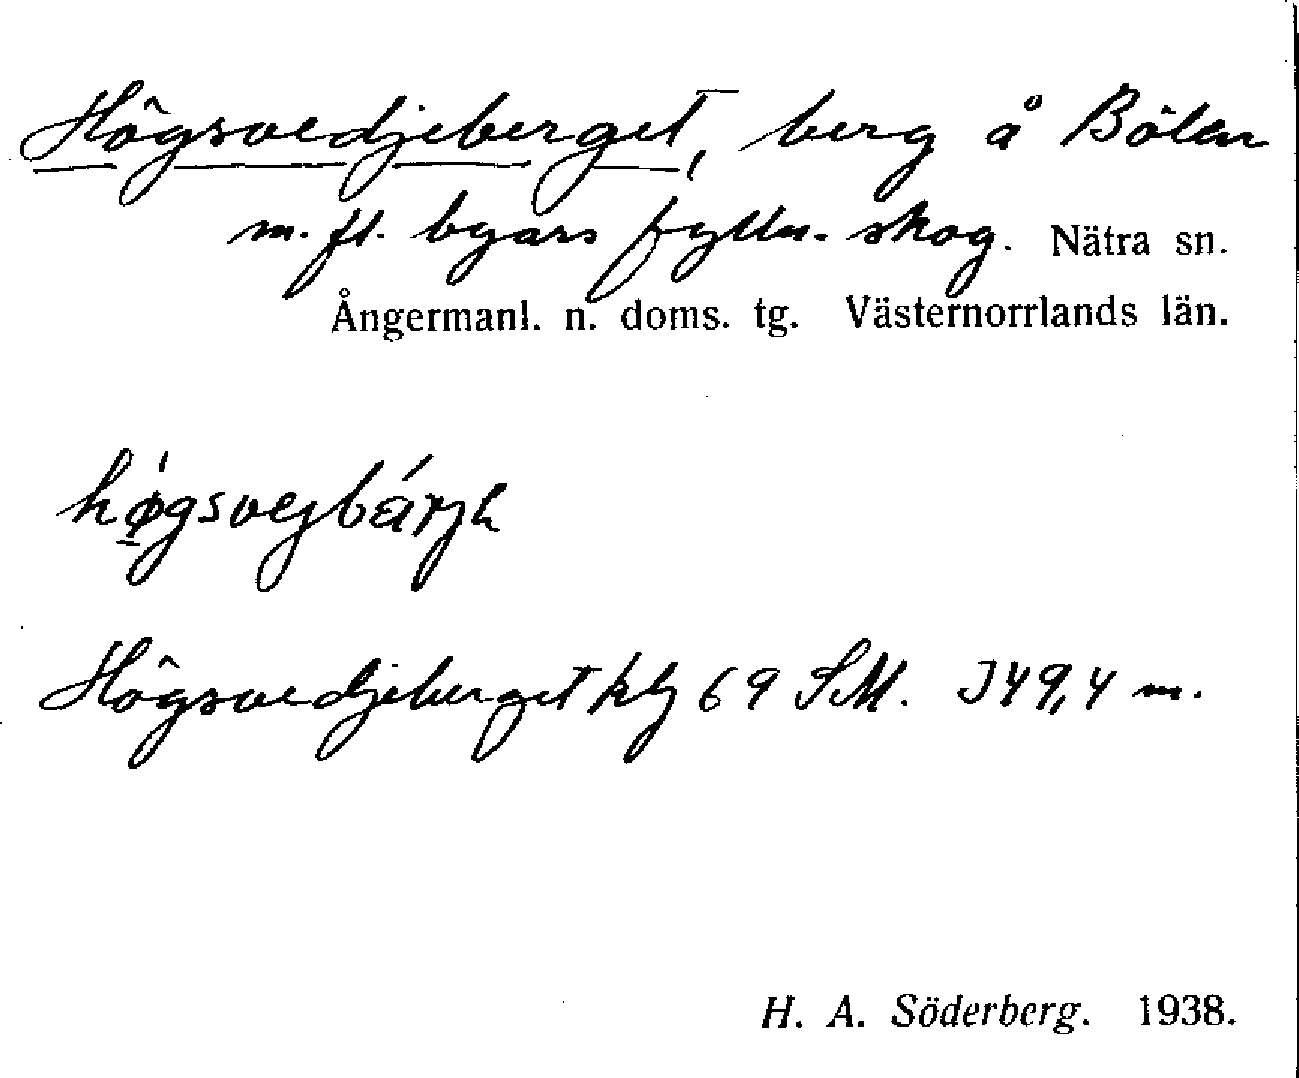 Högsvedjeberget, berg å Bölen
m. fl. byars fylln. skog. Nätra sn.
Ångermanl. n. doms. tg. Västernorrlands län.
hǿ̱gsvejbárjh
Högsvedjeberget kbj 69 SM. 349,4 m.
H. A. Söderberg. 1938.